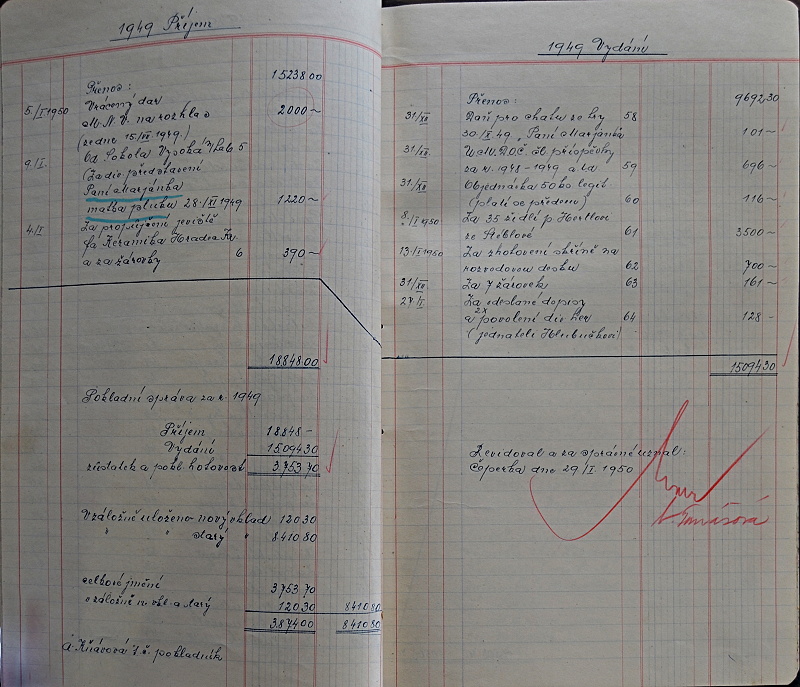 1949 Příjem
Přenos: 15238 00
5./I 1950 Vrácený dar
M.N.V. na rozhlas 2000 ~
(ze dne 15/XII 1949.)
9./I. Od Sokola Vysoká n/Lab 5
(Za die představení
Paní Marjánka
matka pluku 28./XI 1949 1220 ~
4./I Za propůjčení jeviště
fa Keramika Hradec Kr.
a za žárovky 6 390 ~
18848.00
Pokladní zpráva za r. 1949
Příjem 18.848 -
Vydání 15094 30
zůstatek a pokl. hotovost 3.753 70
V záložně uloženo - nový vklad 120 30
" " starý " 8410 80
celkové jmění 3753.70
v záložně n. vkl. a starý 120 30 8410 80
3.874 00 8410 80
A. Kňávová t.č. pokladník
1949 Vydání
Přenos: 9692.30
31/XII Daň pro chabu ze hry 58
30/XI 49. "Paní Marjánka 101 ~
31/XII ÚMDOČ. čl. příspěvky
za r. 1948 - 1949 a ta 59 696 ~
31/XII Objednávka 50 ko legit
(platí se předem) 60 116 ~
8./I 1950 Za 35 židlí p Hertlov
ze Stéblové 61 3500 ~
13/I 1950 Za zhotovení skříně na
rozvodovou desku 62 700 ~
31/XII Za 7 žárovek 63 161 ~
27/I Za odeslané dopisy
a 2x povolení div her 64 128 -
(jednateli Hlubučkovi)
15094 30
Revidoval a za správné uznal:
Čeperka dne 29/I. 1950
Tomášová